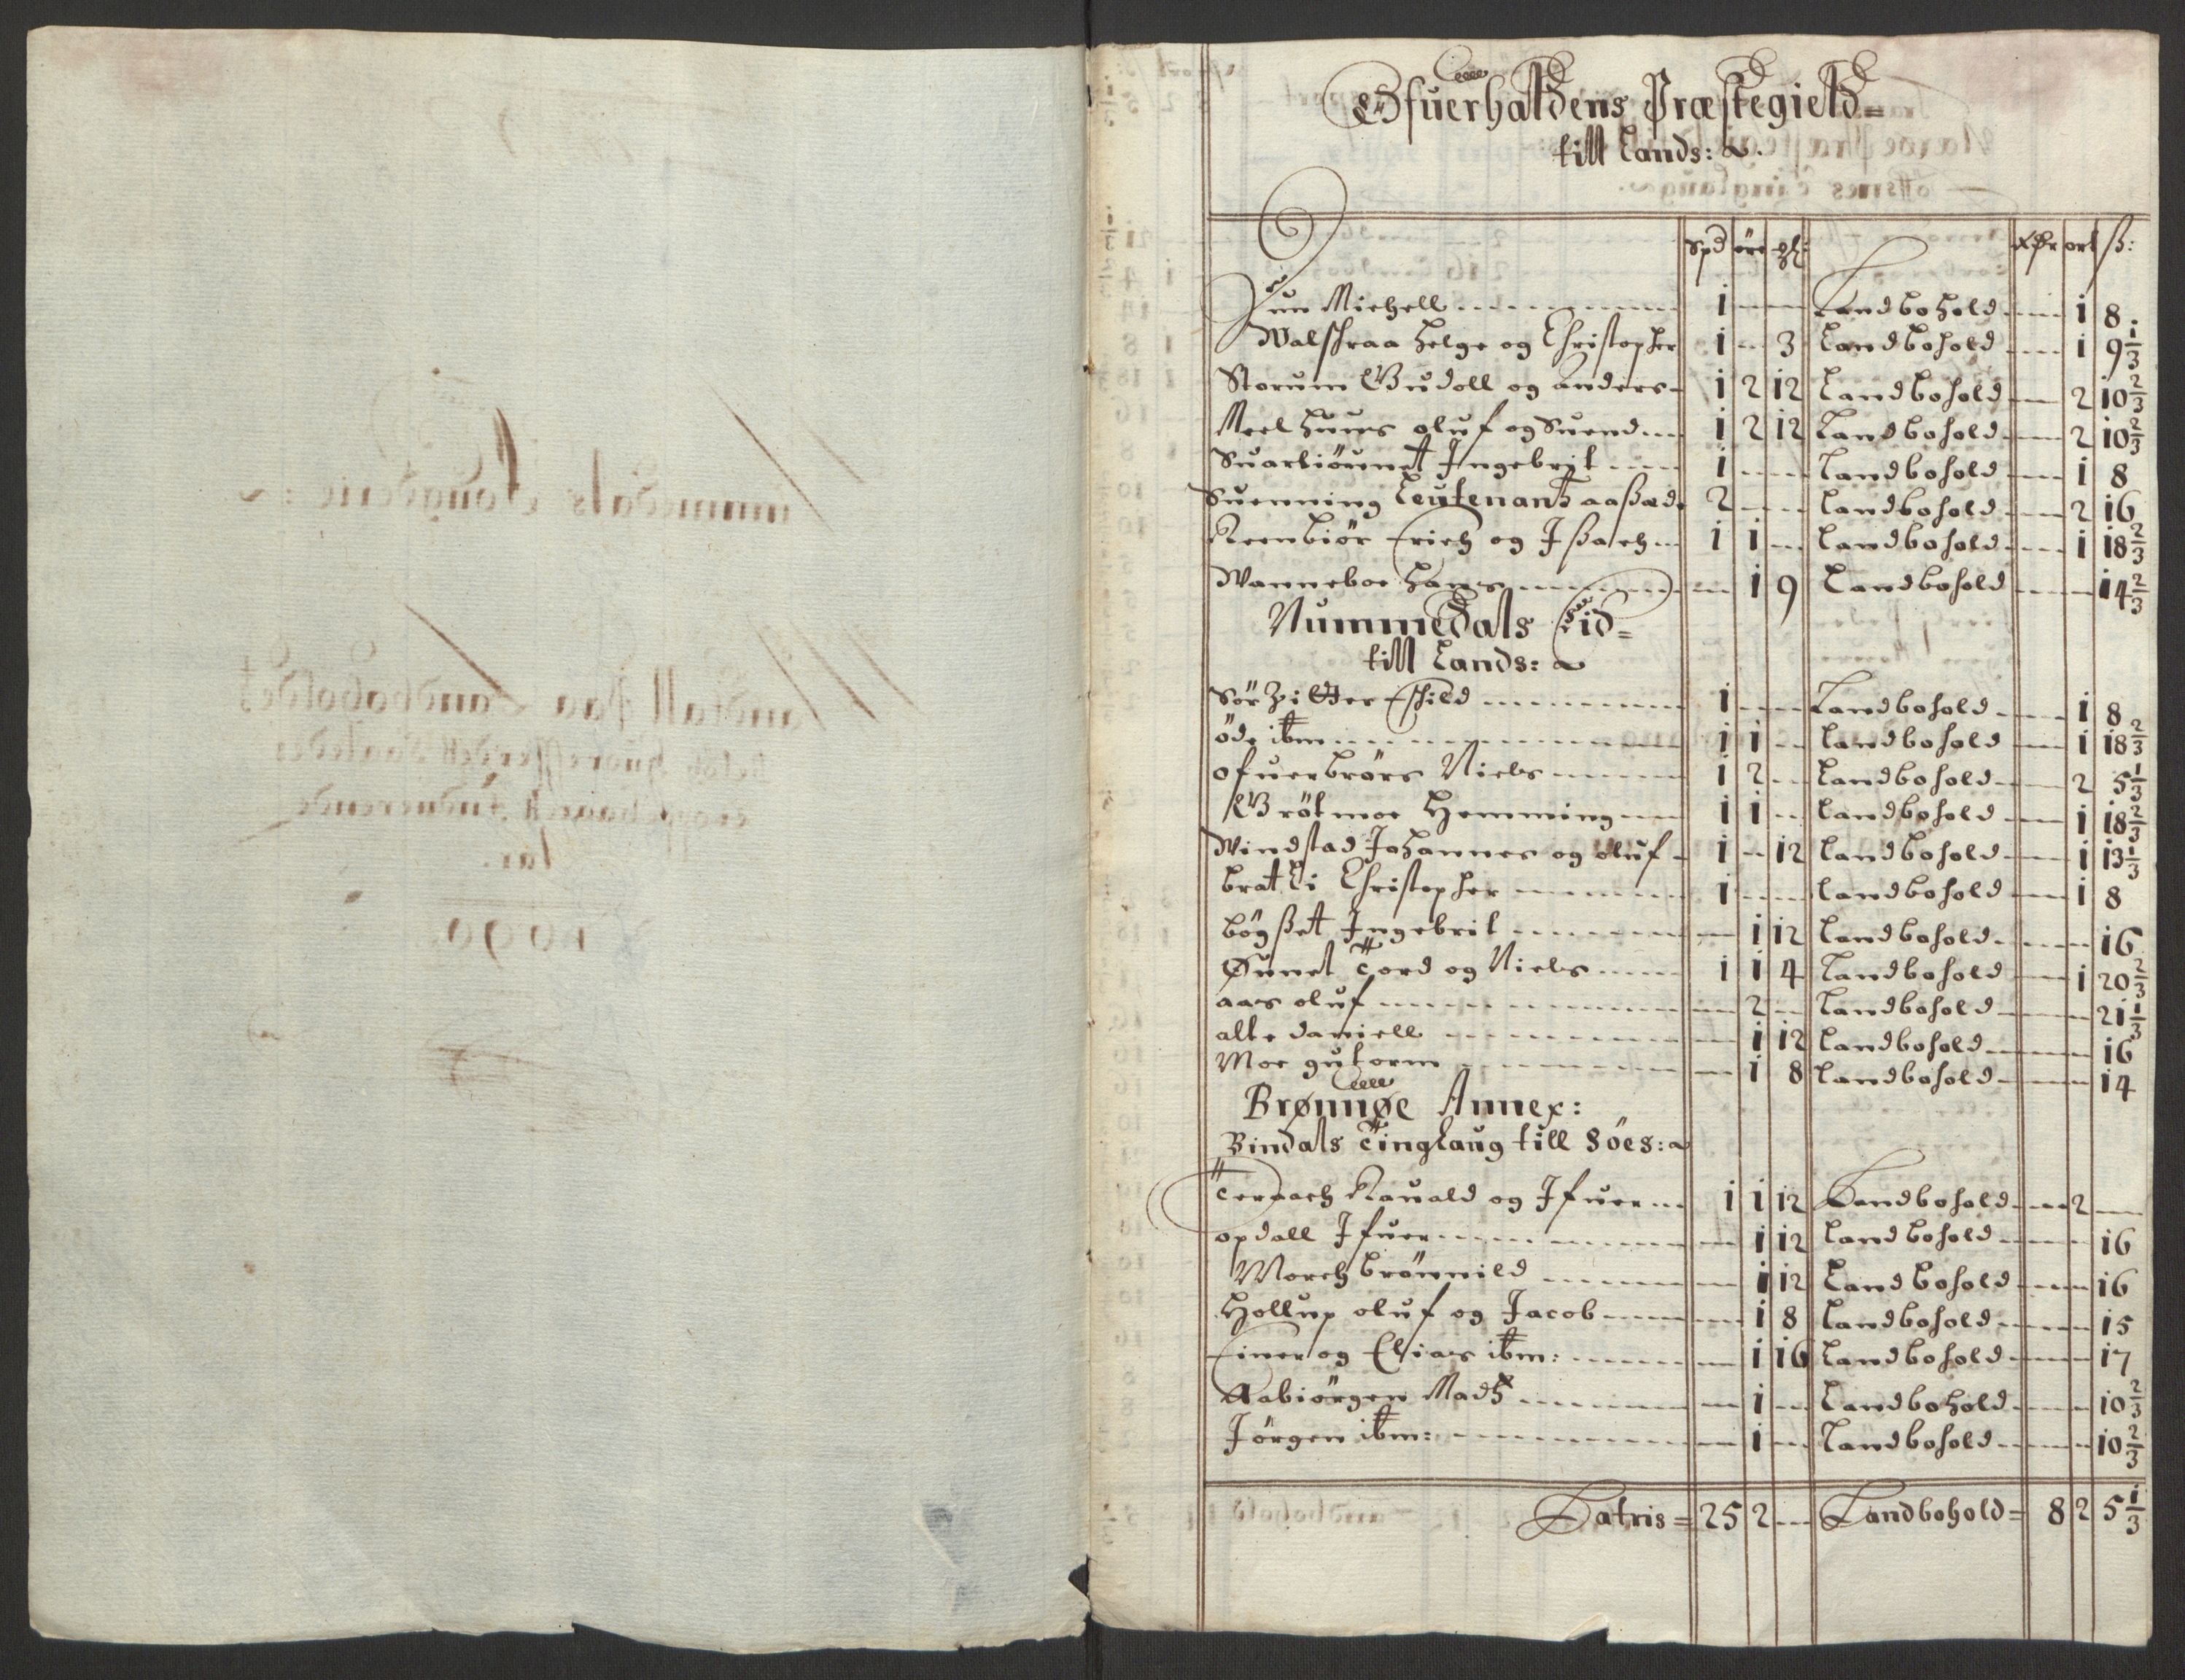 Ofuerhaldens Præstegield=
till Lands:
Spd öre ml: Rdr ort ß:
Jun Michell 1 Landbohold 1 8
Walskraa Helge og Christopher 1 3 Landbohold 1 9 1/3
Storum Gudoll og Anders 1 2 12 Landbohold 2 10 2/3
Meel Huus oluf og Suend 1 2 12 Landbohold 2 10 2/3
Suarliöunet Ingebrit 1 Landbohold 1 8
Suenning Leutenant aaßæde 2 Landbohold 2 16
Reenbiör Erich og Ißach 1 1 Landbohold 1 18 2/3
Wanneboe Hans 1 9 Landbohold 14 2/3
Nummedals Eid=
till Lands:
Sör Eschild 1 Landbohold 1 8
öde ibm 1 1 Landbohold 1 18 2/3
ofuerbrörs Niels 1 2 Landbohold 2 5 1/3
Grötmoe Hemming 1 1 Landbohold 1 18 2/3
Windstad Johannes og oluf 1 12 Landbohold 1 13 1/3
bratli Christopher 1 Landbohold 1 8
bögßet Ingebrit 1 12 Landbohold 16
Øunet Tord og Niels 1 1 4 Landbohold 1 20 2/3
aas oluf 2 Landbohold 21 1/3
alte daniell 1 12 Landbohold 16
Moe gutorm 1 8 Landbohold 14
Brønnøe Annex:
Bindals Tinglaug till Söes:
Teraach Rauald og Ifuer 1 1 12 Landbohold 2
opdall Ifuer 1 12 Landbohold 16
Morch brönnild 1 12 Landbohold 16
Hollup oluf og Jacob 1 8 Landbohold 15
Einer og Elias ibm: 1 16 Landbohold 17
Aabiörgen Madß 1 Landbohold 10 2/3
Jörgen ibm: 1 Landbohold 10 2/3
Latris= 25 2 Landbohold= 8 2 5 1/3